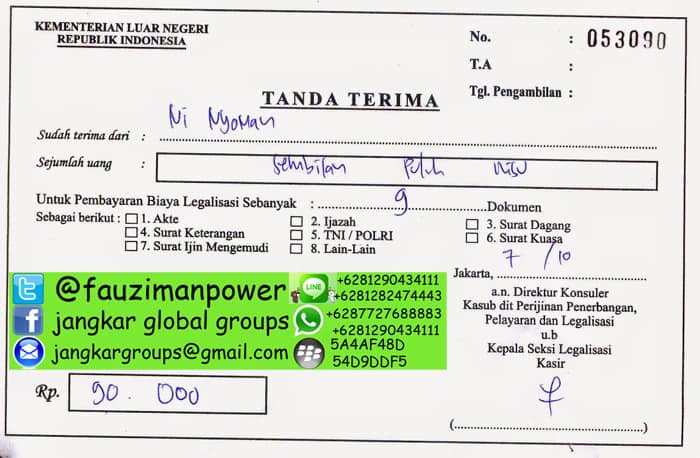 KEMENTERIAN LUAR NEGERI
REPUBLIK INDONESIA
No. : 053090
T.A :
Tgl. Pengambilan :
TANDA TERIMA
Sudah terima dari : Ni Nyoman
Sejumlah uang : Sembilan Puluh ribu
Untuk Pembayaran Biaya Legalisasi Sebanyak : 9 Dokumen
Sebagai berikut : 1. Akte 2. Ijazah 3. Surat Dagang
4. Surat Keterangan 5. TNI / POLRI 6. Surat Kuasa
7. Surat Ijin Mengemudi 8. Lain-Lain
Jakarta, 7/10
a.n. Direktur Konsuler
Kasub dit Perijinan Penerbangan,
Pelayaran dan Legalisasi
u.b
Kepala Seksi Legalisasi
Kasir
(....................)
@fauzimanpower
LINE
+6281290434111
+6281282474443
jangkar global groups
+6287727688883
+6281290434111
jangkargroups@gmail.com
5A4AF48D
54D9DDF5
Rp. 90.000